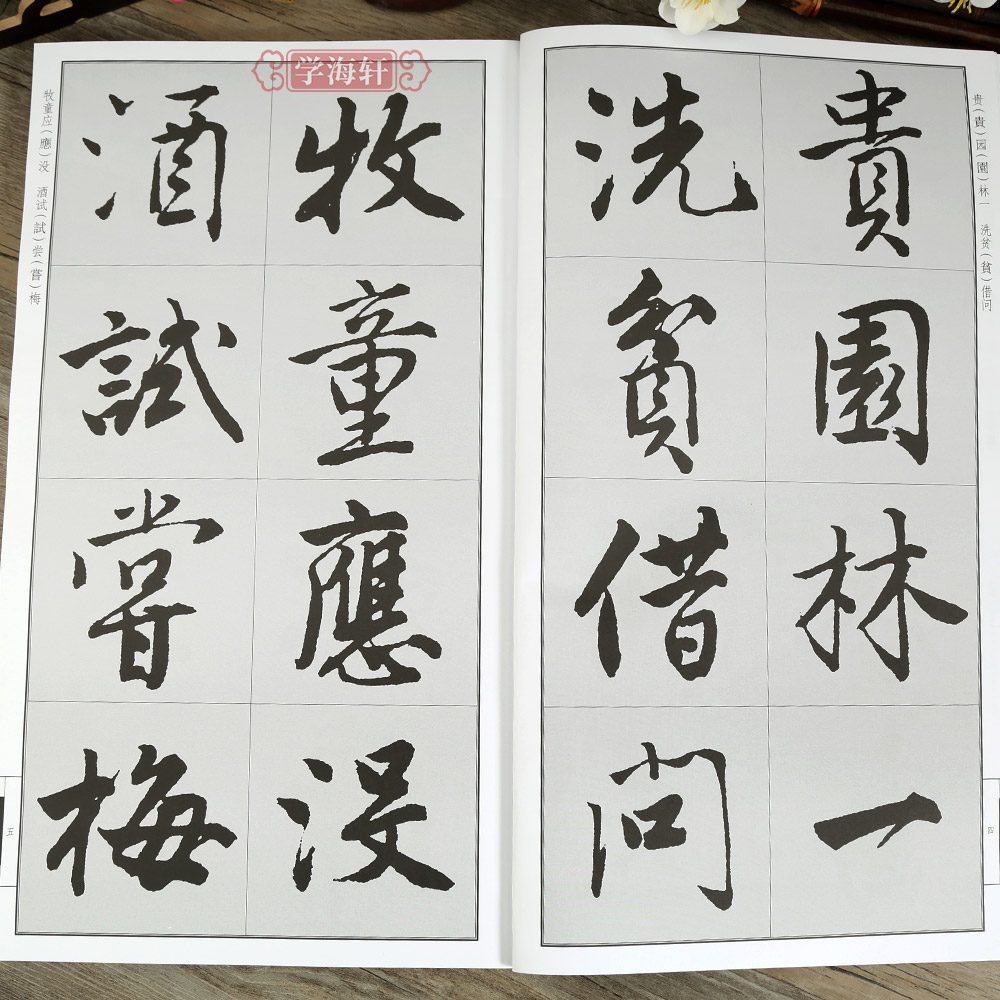 学海轩
贵(貴)园(園)林一 洗贫(貧)借问
貴園林一
洗貧借問
四
牧童应(應)没 酒试(試)尝(嘗)梅
牧童應没
酒試嘗梅
五